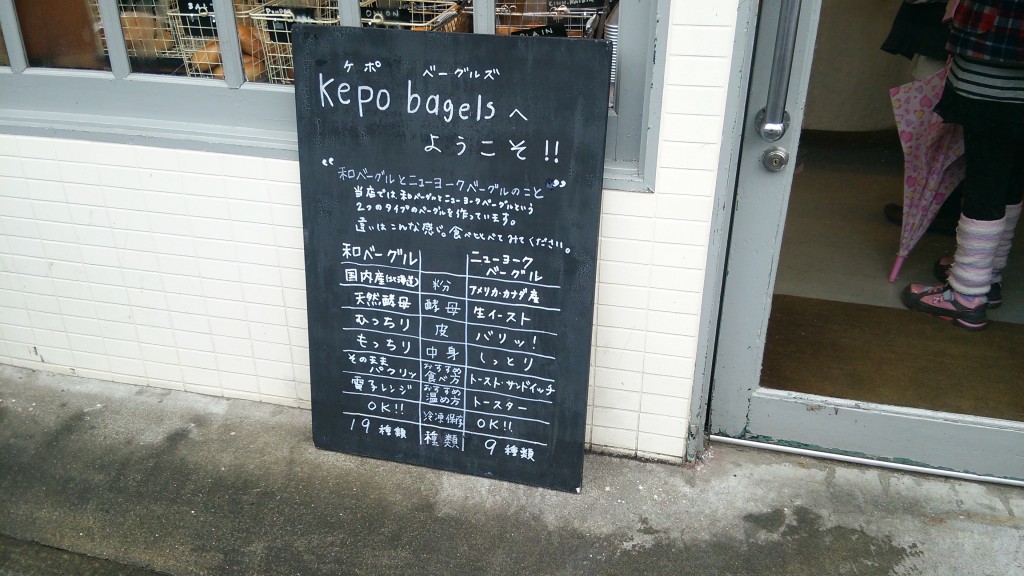 PLAIN
ケポ ベーグルズ
Kepo bagels へ
ようこそ!!
“和ベーグルとニューヨークベーグルのこと”
当店では和ベーグルとニューヨークベーグルという
2つのタイプのベーグルを作っています。
違いはこんな感じ。食べくらべてみてください。
和ベーグル ニューヨークベーグル
国内産(北海道) 粉 アメリカ・カナダ産
天然酵母 酵母 生イースト
むっちり 皮 バリッ!
もっちり 中身 しっとり
そのままパクリッ おすすめ食べ方 トースト・サンドイッチ
電子レンジ おすすめ温め方 トースター
OK!! 冷凍保存 OK!!
19種類 種類 9種類